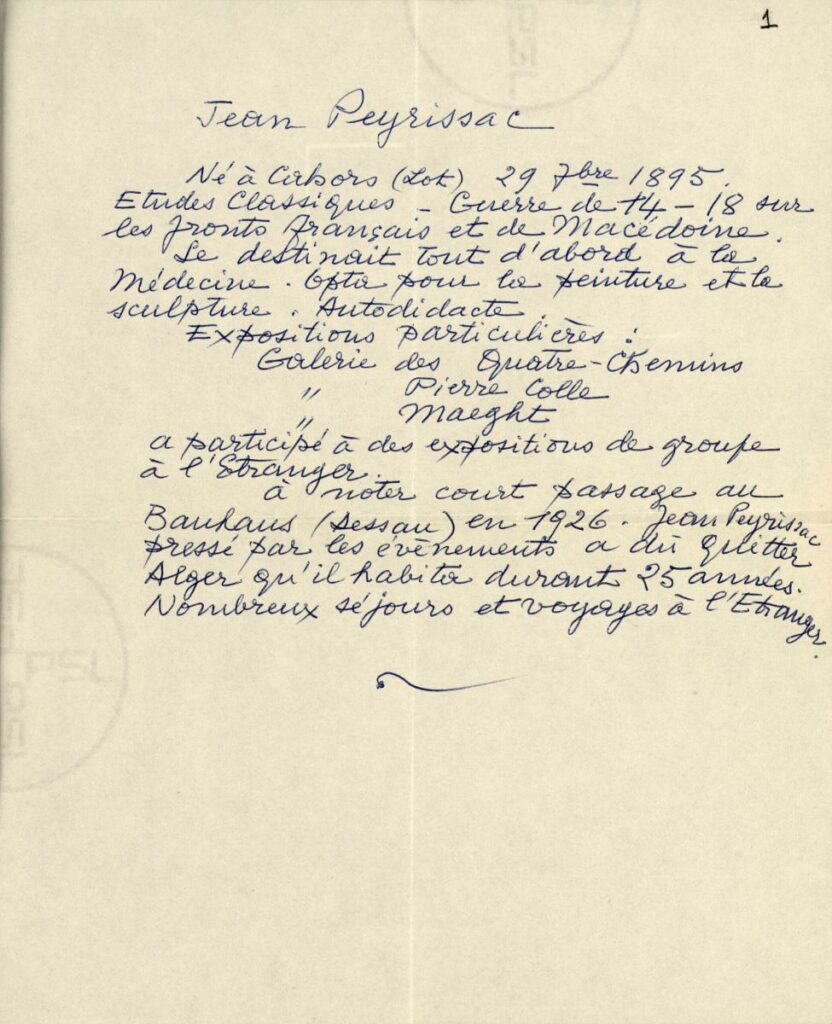 1
Jean Peyrissac
Né à Cahors (Lot) 29 7bre 1895.
Etudes Classiques - Guerre de 14-18 sur
les fronts français et de Macédoine.
Se destinait tout d'abord à la
Médecine. Opta pour la peinture et la
sculpture. Autodidacte.
Expositions particulières :
Galerie des Quatre-Chemins
" Pierre Colle
" Maeght
a participé à des expositions de groupe
à l'Etranger.
à noter court passage au
Bauhaus (Dessau) en 1926. Jean Peyrissac
pressé par les évènements a dû quitter
Alger qu'il habita durant 25 années.
Nombreux séjours et voyages à l'Etranger.